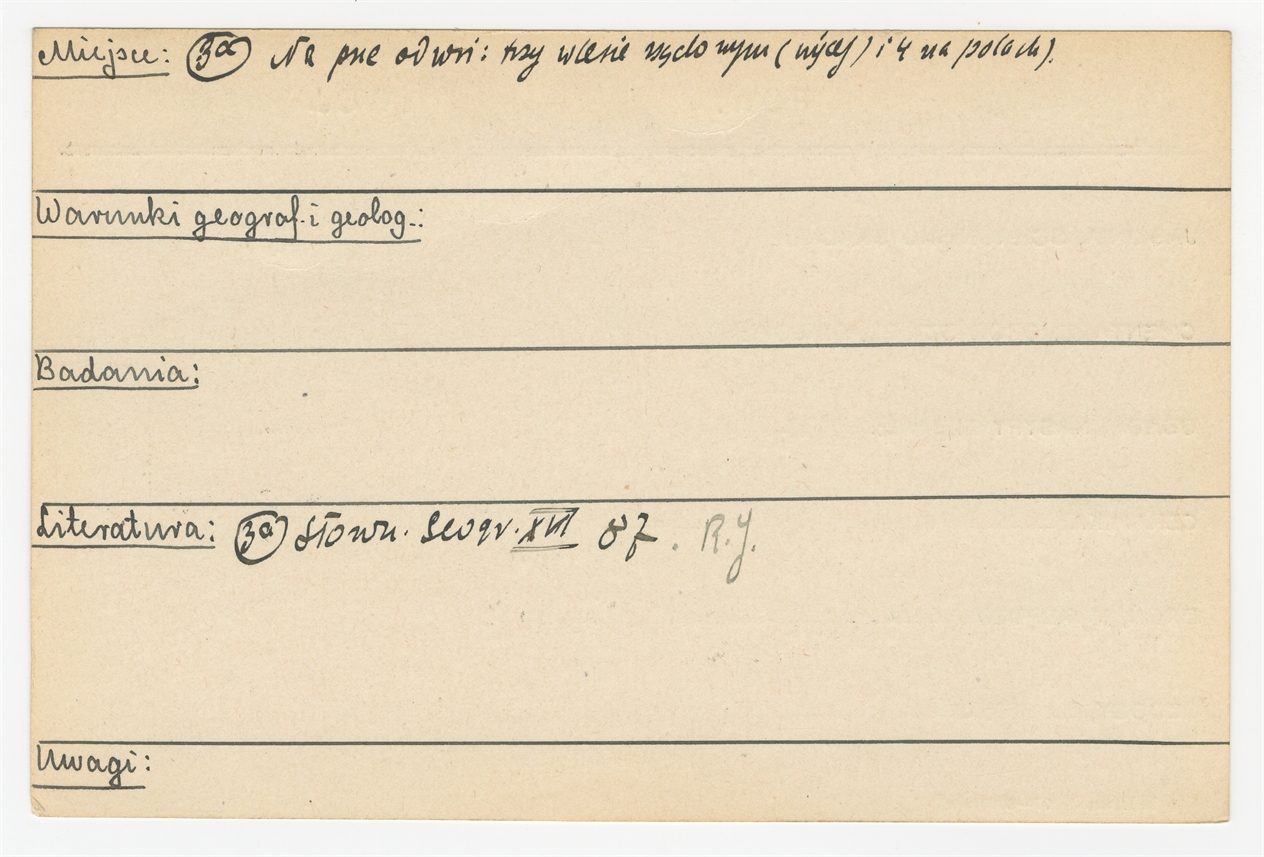 Miejsce: 3a Na pne od wsi: trzy w lesie rządowym ( ) i 4 na polach).
Warunki geograf. i geolog.:
Badania:
Literatura: 3a Słown. Geogr. XVI 87. R.J.
Uwagi: